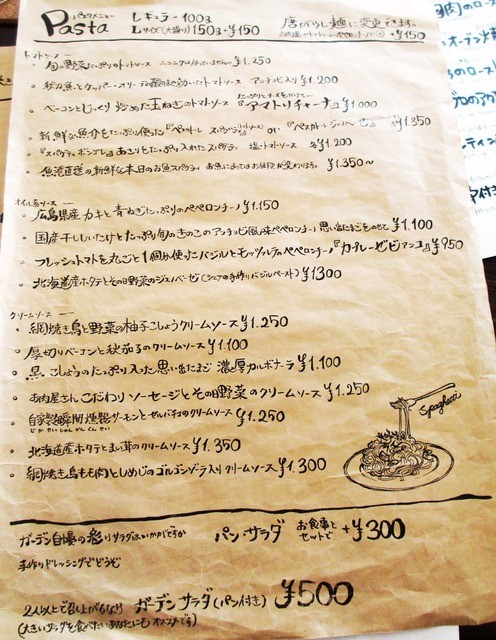 Pasta パスタメニュー レギュラー 100g 唐がらし麺に変更できます。
Lサイズ(大盛り)150g+¥150 +¥150
トマトソース
・旬の野菜たっぷりのトマトソース ¥1.250
・秋刀魚とケッパー、オリーブ 酸味の効いたトマトソース アンチョビ入り ¥1.200
たっぷりとチーズをかけて
・ベーコンとじっくり炒めた玉ねぎのトマトソース『アマトリチャーナ』¥1.000
・新鮮な魚介をたっぷり使った『ペスカトーレ or ¥1.350
・『スパゲティボンゴレ』あさりをたっぷり入れたスパゲティ 塩・トマトソース ¥1.200
・漁港直送の新鮮な本日のお魚スパゲティ お魚によってお値段が変わります。 ¥1.350~
オイル系ソース
・広島県産カキと青ねぎたっぷりのペペロンチーノ ¥1.150
・国産干ししいたけとたっぷり旬のきのこのアンチョビ風味ペペロンチーノ 思い出たまごをのせて ¥1.100
・フレッシュトマトを丸ごと1個分使ったバジルとモッツァレラのペペロンチーノ『カプレーゼビアンコ』¥950
・北海道産ホタテとその日野菜のジェノベーゼ(シェフの手作りバジルペースト) ¥1300
クリームソース
・網焼き鳥と野菜の柚子こしょうクリームソース ¥1.250
・厚切りベーコンと秋茄子のクリームソース ¥1.100
・黒こしょうのたっぷり入った思い出たまご 濃厚カルボナーラ ¥1.100
・お肉屋さんこだわりソーセージとその日野菜のクリームソース ¥1.250
・自家製瞬間燻製サーモンとセルバチコのクリームソース ¥1.250
じかせいしゅんかんくんせい
・北海道産ホタテとまい茸のクリームソース ¥1.350
・網焼き鳥もも肉としめじのゴルゴンゾラ入りクリームソース ¥1.300
Spaghetti
ガーデン自慢の彩りサラダはいかがですか パン・サラダ お食事とセットで +¥300
手作りドレッシングでどうぞ
2人以上で召し上がるなら ガーデンサラダ(パン付き) ¥500
(大きいサラダを食べたいあなたにもオススメです)